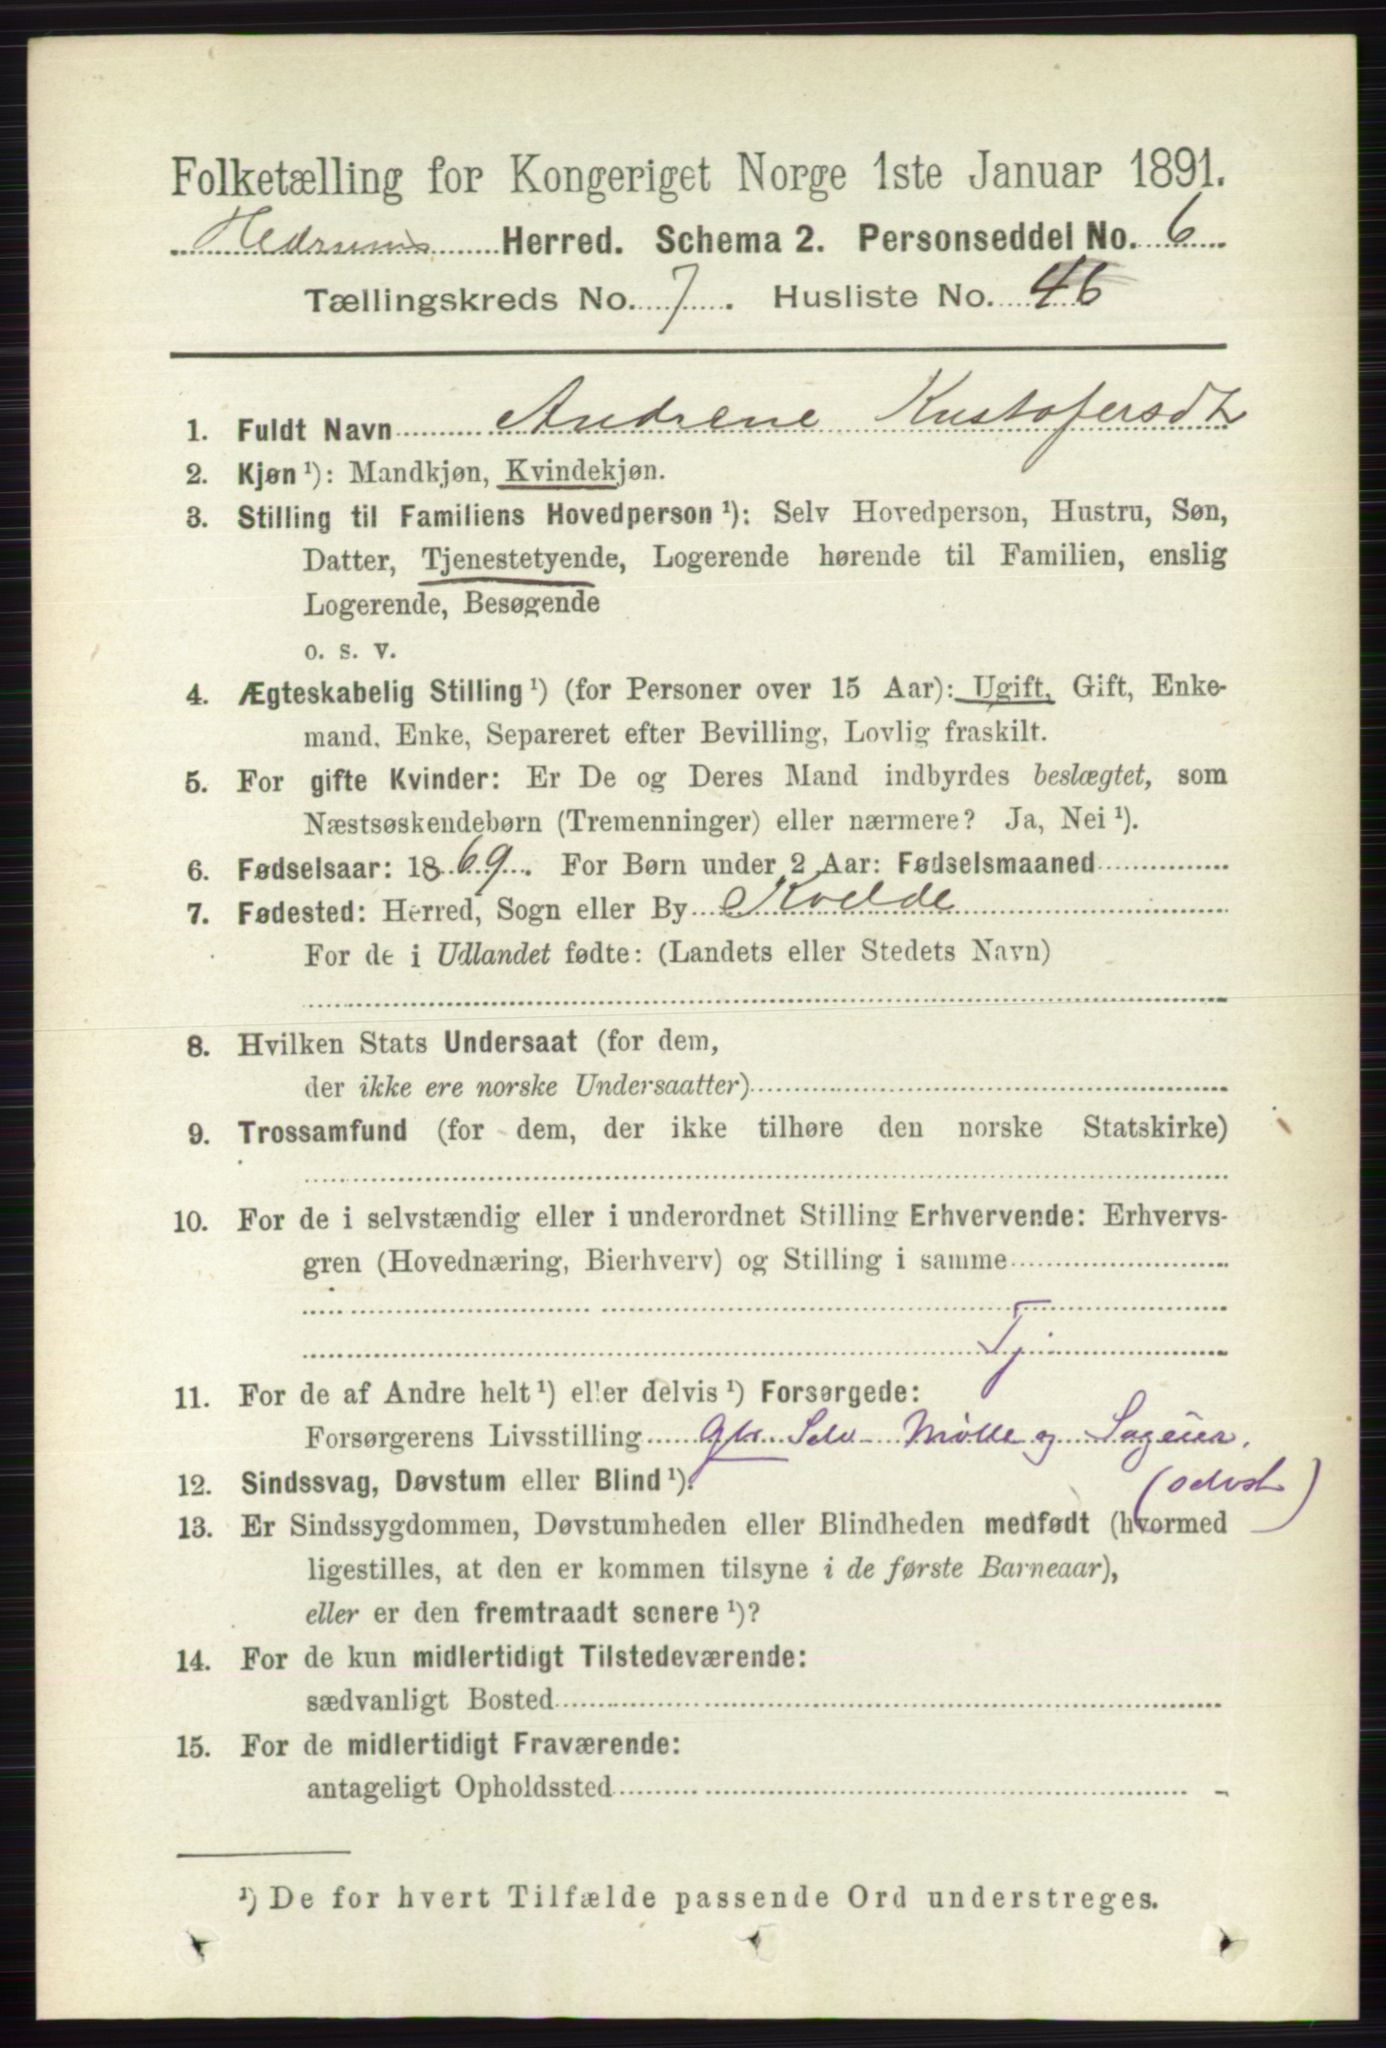 Folketælling for Kongeriget Norge 1ste Januar 1891.
Hedrums Herred. Schema 2. Personseddel No. 6
Tællingskreds No. 7. Husliste No. 46
1. Fuldt Navn Andrene Kustofersdt
2. Kjøn ¹): Mandkjøn, Kvindekjøn.
3. Stilling til Familiens Hovedperson ¹): Selv Hovedperson, Hustru, Søn,
Datter, Tjenestetyende, Logerende hørende til Familien, enslig
Logerende, Besøgende
o. s. v.
4. Ægteskabelig Stilling ¹) (for Personer over 15 Aar): Ugift, Gift, Enke-
mand, Enke, Separeret efter Bevilling, Lovlig fraskilt.
5. For gifte Kvinder: Er De og Deres Mand indbyrdes beslægtet, som
Næstsøskendebørn (Tremenninger) eller nærmere? Ja, Nei ¹).
6. Fødselsaar: 1869. For Børn under 2 Aar: Fødselsmaaned
7. Fødested: Herred, Sogn eller By Kvelde
For de i Udlandet fødte: (Landets eller Stedets Navn)
8. Hvilken Stats Undersaat (for dem,
der ikke ere norske Undersaatter)
9. Trossamfund (for dem, der ikke tilhøre den norske Statskirke)
10. For de i selvstændig eller i underordnet Stilling Erhvervende: Erhvervs-
gren (Hovednæring, Bierhverv) og Stilling i samme
Tj
11. For de af Andre helt ¹) eller delvis ¹) Forsørgede:
Forsørgerens Livsstilling Gbr. Selv Mølle og Sageier.
12. Sindssvag, Døvstum eller Blind ¹).
13. Er Sindssygdommen, Døvstumheden eller Blindheden medfødt (hvormed
ligestilles, at den er kommen tilsyne i de første Barneaar),
eller er den fremtraadt senere ¹)?
14. For de kun midlertidigt Tilstedeværende:
sædvanligt Bosted
15. For de midlertidigt Fraværende:
antageligt Opholdssted
¹) De for hvert Tilfælde passende Ord understreges.